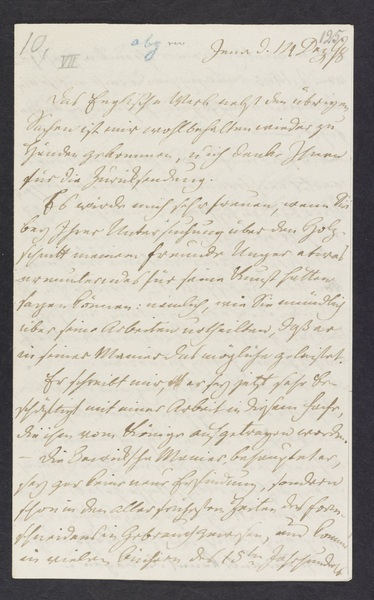 10.
VII
abg
125
Jena d. 14 Dez 98
Das Englische Werk nebst den übrigen
Sachen ist mir wohlbehalten wieder zu
Händen gekommen, u ich danke Ihnen
für die Zurücksendung.
Es würde mich sehr freuen, wenn Sie
bey Ihrer Untersuchung über den Holz-
schnitt meinem Freunde Unger etwas
ermunterndes für seine Kunst hätten
sagen können: nemlich, wie Sie mündlich
über seine Arbeiten urtheilten, daß er
in seiner Manier das mögliche geleistet.
Er schreibt mir, er sey jetzt sehr be-
schäftigt mit einer Arbeit in diesem Fache,
die ihm vom Könige aufgetragen worden.
– Die Manier behauptet er,
sey gar keine neue Erfindung, sondern
schon in den allerfrühsten Zeiten des Form-
schneidens in Gebrauch gewesen, und komme
in vielen Büchern des 15ten Jahrhunderts